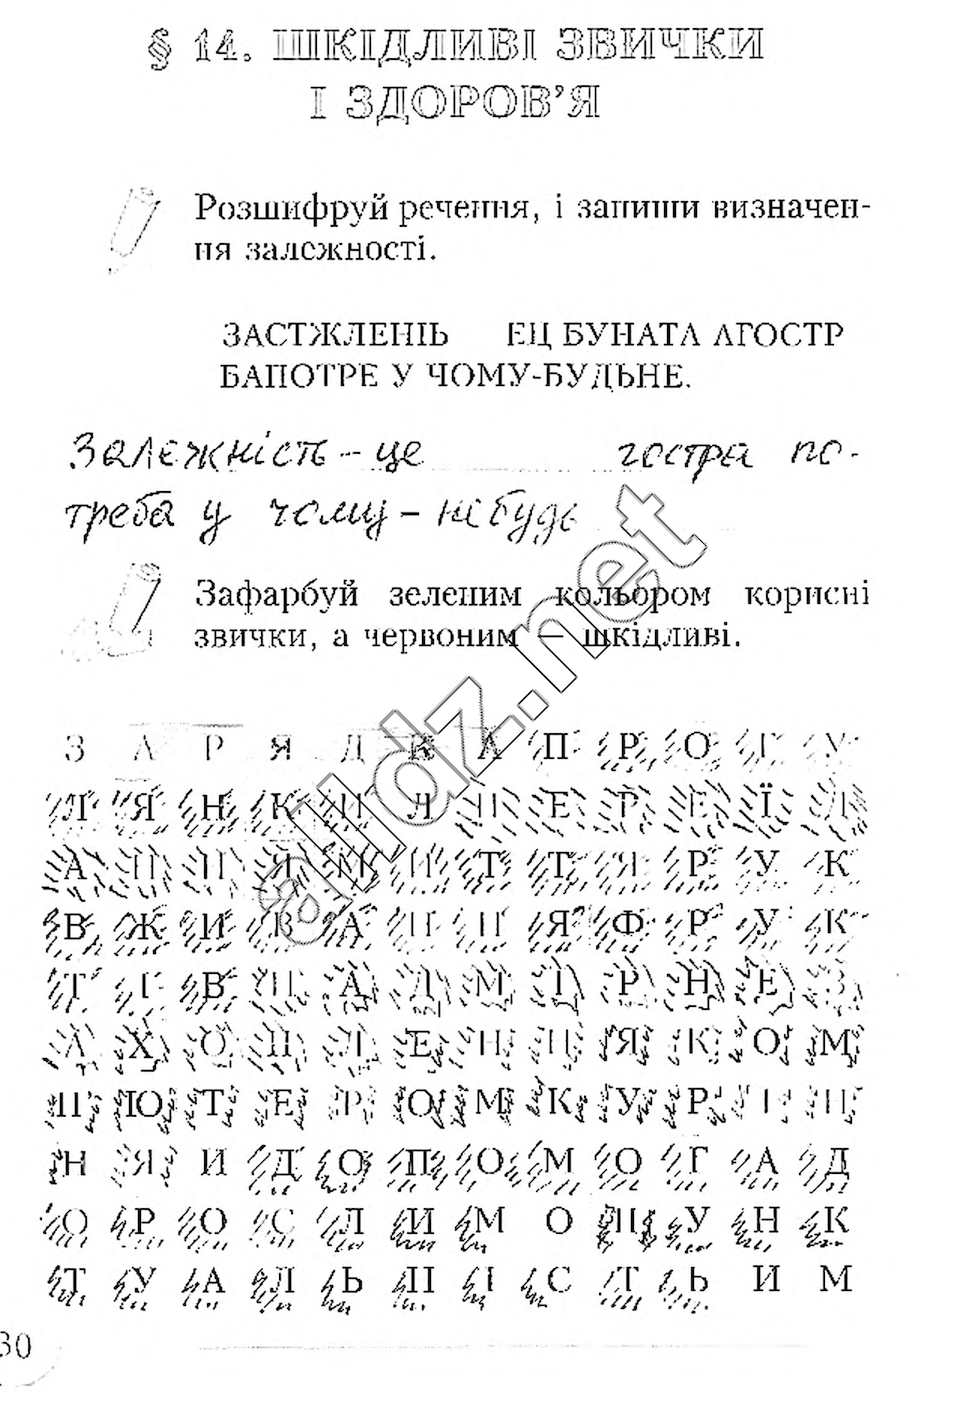 § 14. ШКІДЛИВІ ЗВИЧКИ
І ЗДОРОВ’Я
Розшифруй речення, і запиши визначен-
ня залежності.
ЗАСТЖЛЕНІЬ ЕЦ БУНАТА АГОСТР
БАПОТРЕ У ЧОМУ-БУДЬНЕ.
Залежність - це гостра по-
треба у чому - небудь
Зафарбуй зеленим кольором корисні
звички, а червоним — шкідливі.
alldz.net
З А Р Я Д К А П Р О Г У
Л Я Н К И Л П Е Р Е Ї Д
А Н Н Я М И Т Т Я Р У К
В Ж И В А Н Н Я Ф Р У К
Т І В Н А Д М І Р Н Е З
А Х О П Л Е Н Н Я К О М
П Ю Т Е Р О М К У Р І Н
Н Я И Д О П О М О Г А Д
О Р О С Л И М О П У Н К
Т У А Л Ь Н І С Т Ь И М
30